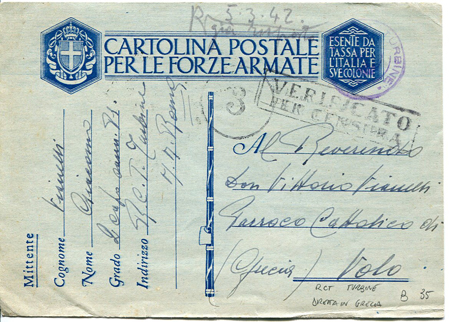 R 5.3.42.
CARTOLINA POSTALE
PER LE FORZE ARMATE
ESENTE DA
TASSA PER
L'ITALIA E
SVE COLONIE
VERIFICATO
PER CENSURA
3
Mittente
Cognome Vianelli
Nome Giacomo
Grado
Indirizzo R.C.T. Turbine
Al Reverendo
Don Vittorio Vianelli
Parroco Cattolico di
(Grecia) Volo
RCT TURBINE
DIRETTA IN GRECIA
B 35